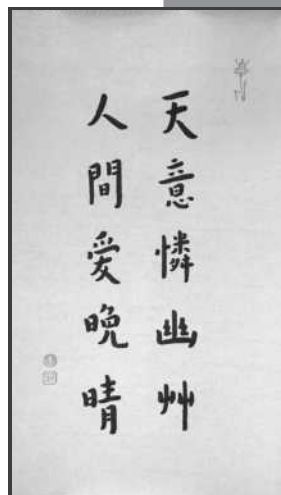 天意憐幽艸
人間愛晚晴